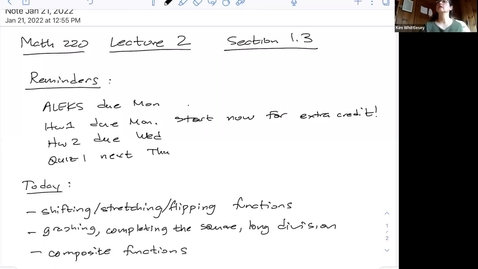 Note Jan 21, 2022
Jan 21, 2022 at 12:55 PM
Math 220 Lecture 2 Section 1.3
Reminders :
ALEKS due Mon .
Hw1 due Mon. start now for extra credit!
Hw 2 due Wed
Quiz 1 next Thu
Today :
- shifting/stretching/flipping functions
- graphing, completing the square, long division
- composite functions
1
2
Kim Whittlesey